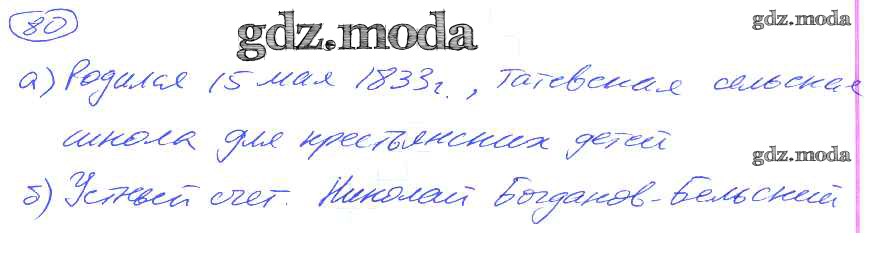 80
gdz.moda
gdz.moda
а) Родился 15 мая 1833 г., Татевская сельская
школа для крестьянских детей
gdz.moda
б) Устный счет. Николай Богданов-Бельский